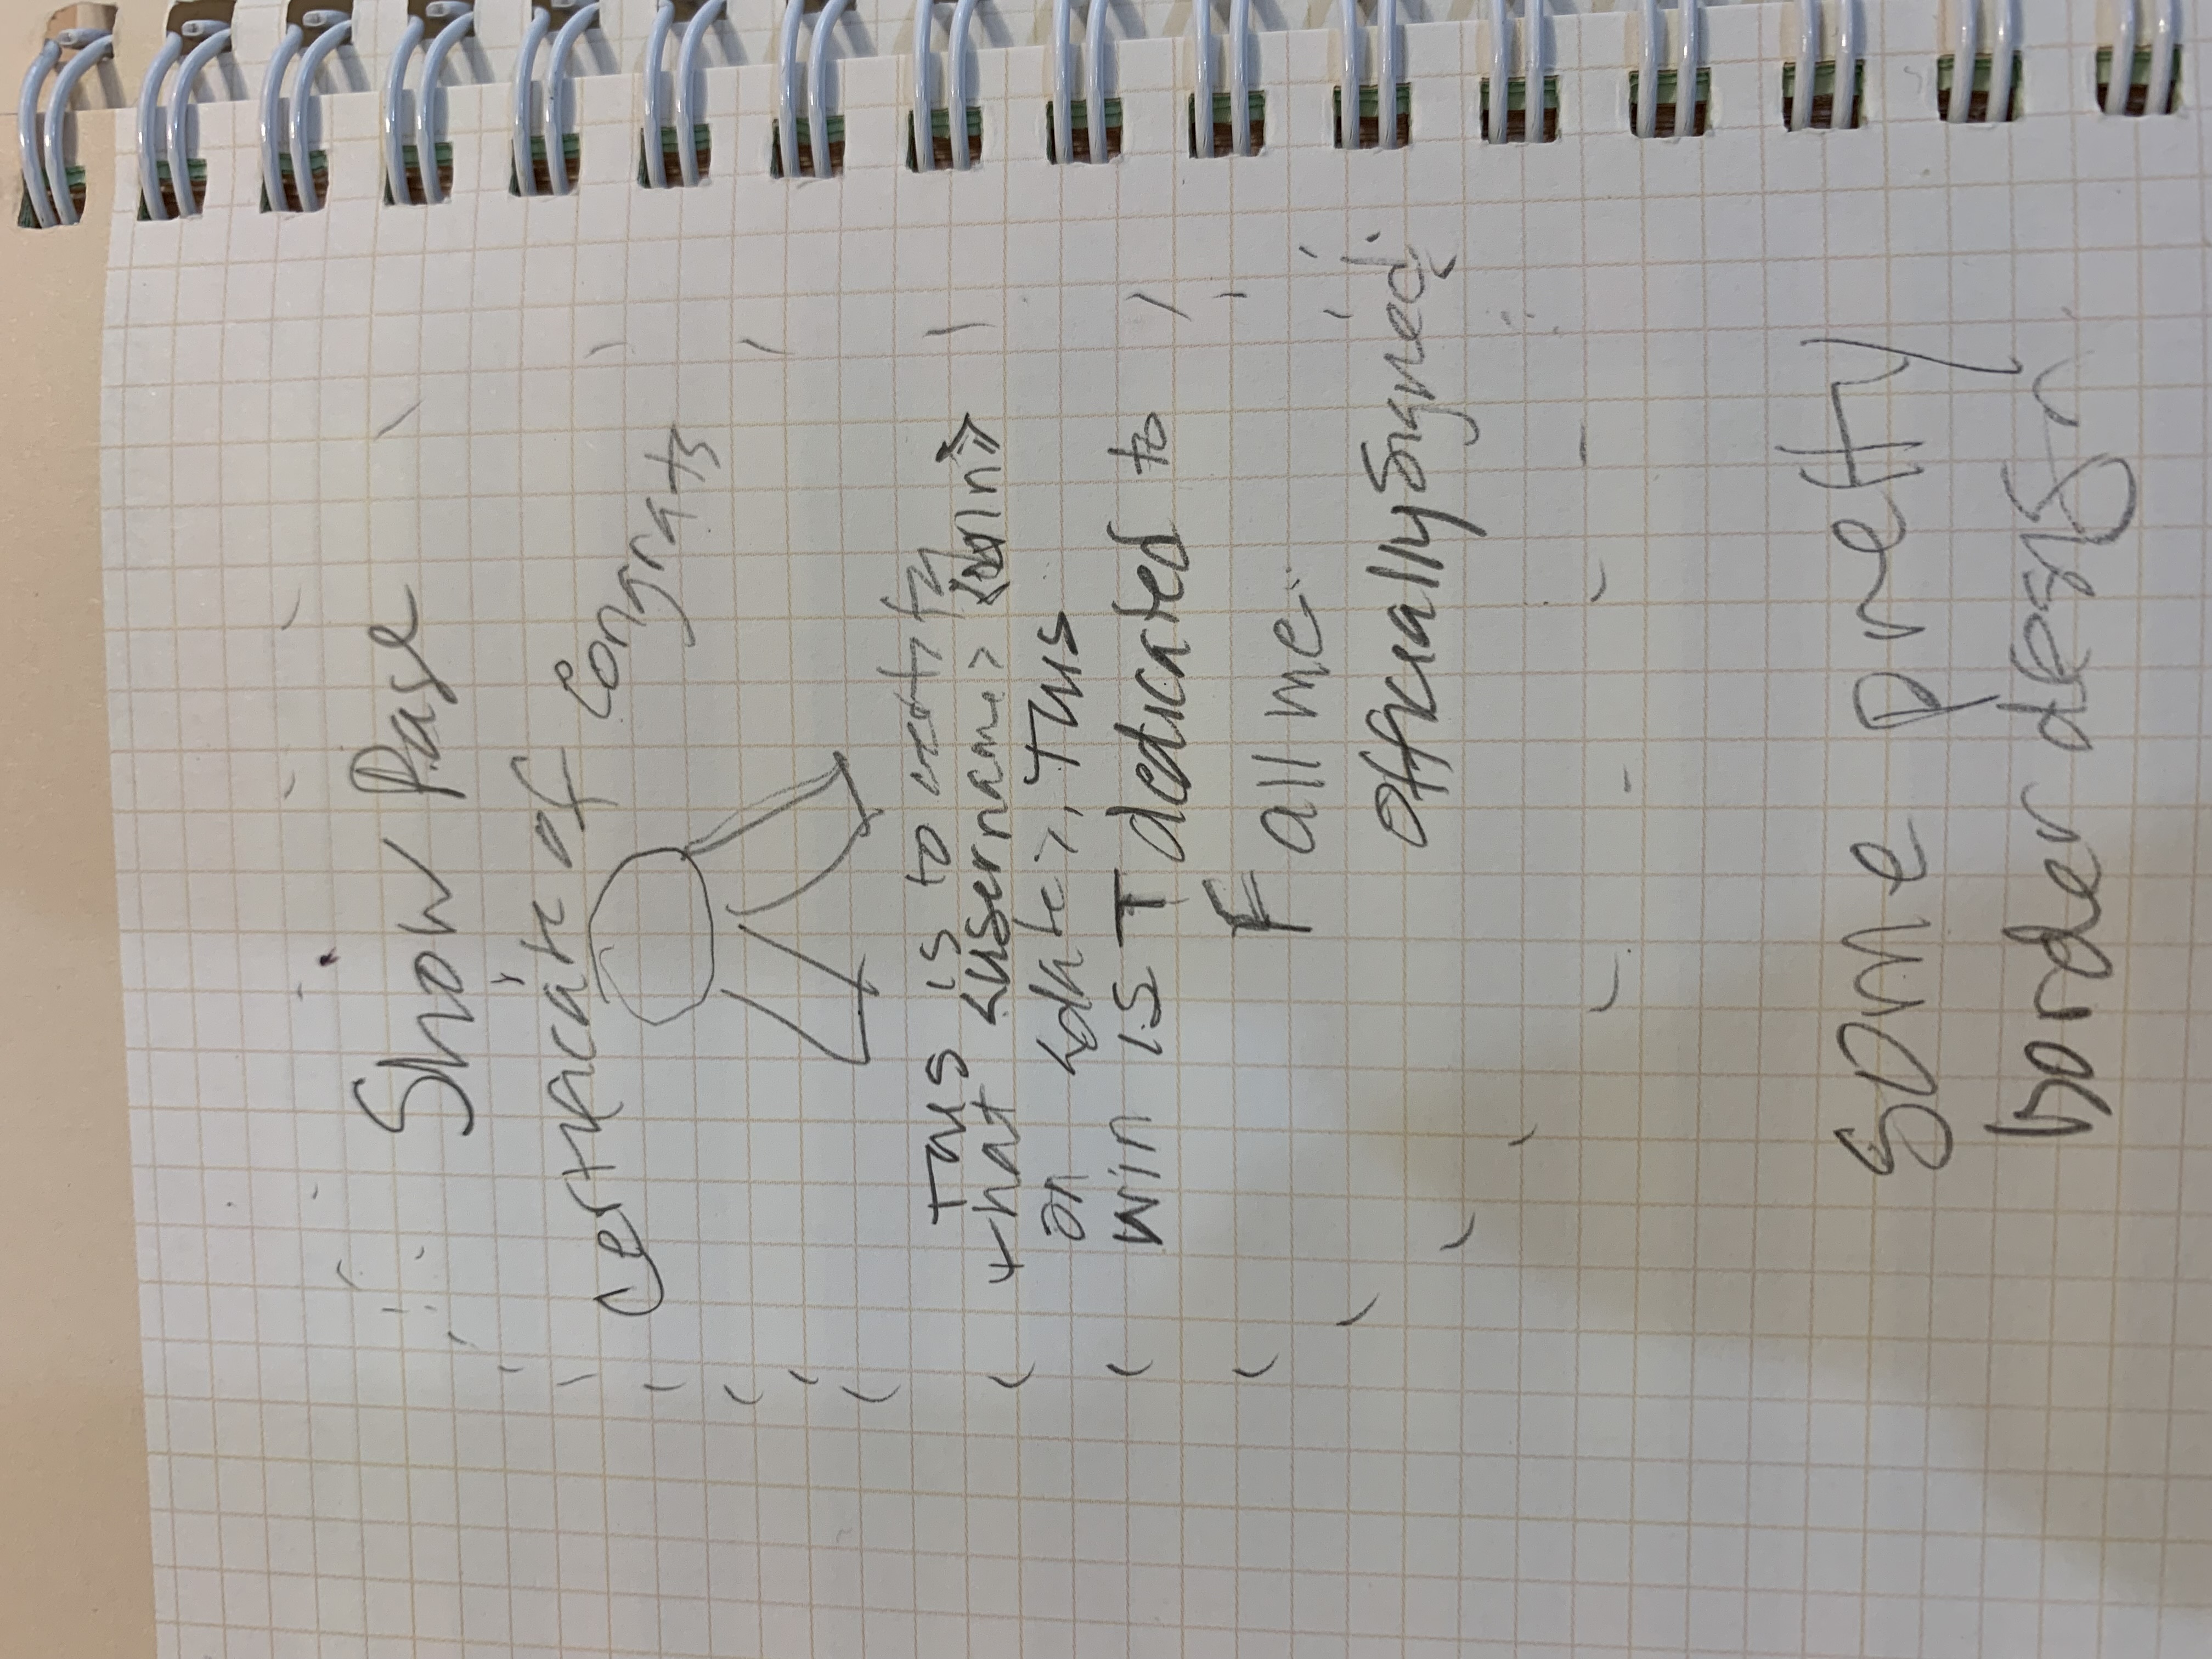 Show Page
Certificate of Congrats
This is to certify
that <username> <win>
on <date>. This
win is T dedicated to
F all me.
Officially Signed
Some pretty
border design